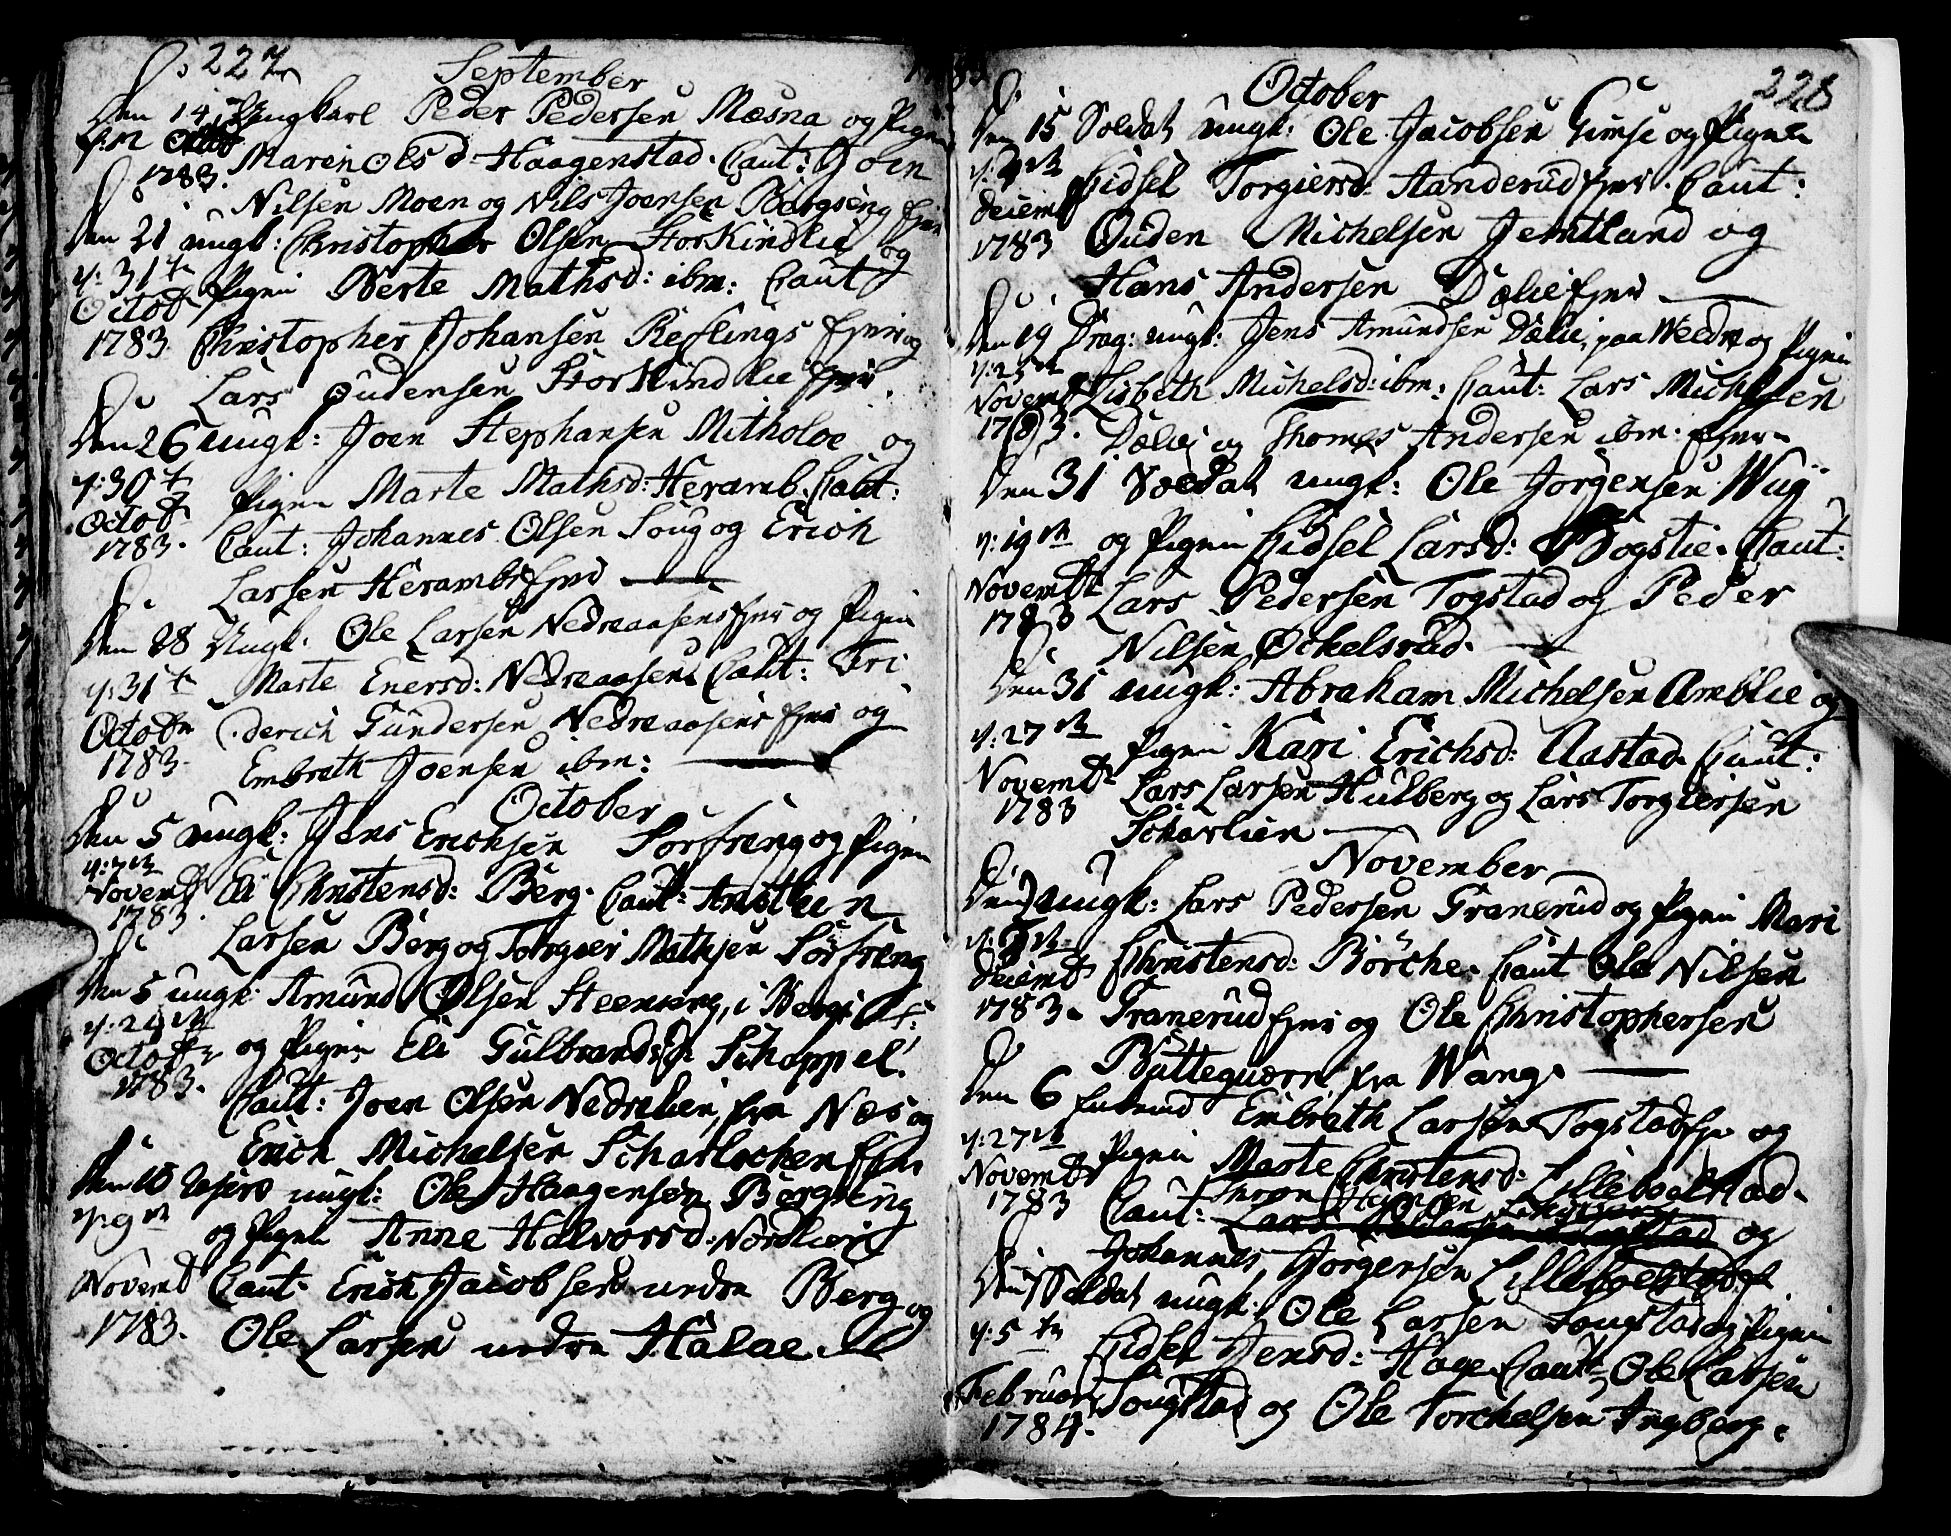 227
September
Den 14 Ungkarl Peder Pedersen Mæsna og Pigen
Maren Olsd Haagenstad. Caut: Joen
1783.
Nilsen Moen og Nils Joensen Bergseng
Den 21 ungk: Christopher Olsen Storkindlie og
31 Pigen Berte Mathsd: ibm: Caut
Octob
1783. Christopher Johansen Reflings Ejer og
Lars Oudensen Storkindlie Ejer.
Den 26 ungk: Joen Stephansen Mitholoe og
30
Pigen Marte Mathsd: Heramb. Caut:
Octob
1783. Caut: Johannes Olsen Soug og Erich
Larsen Herambs Ejer
Den 28 Ungk. Ole Larsen Nedreaasens Ejer og Pigen
31 Marte Enersd: Nedreaasen. Caut: Fri
Octob derich Gundersen Nedreaasens Ejer og
1783. Embreth Joensen ibm:
October
Den 5 ungk: Jens Erichsen Sorfreng og Pigen
7
Novemb Eli Christensd: Berg. Caut: Arsthun
1783.
Larsen Berg og Torgier Mathsen Sörfreng
Den 5 ungk: Amund Olsen Steenberg, i
og Pigen Eli Gulbrandsd: Schappel.
Octob
1783. Caut: Joen Olsen Nedrelien, fra Næs og
Erich Michelsen Scharlochen Ejer
Den 10 ungk: Ole Haagensen Bergseng
9
og Pigen Anne Halvorsd: Nordlien
Novemb Caut. Erich Jacobsen undr Berg og
1783. Ole Larsen undr Halae.
228
October
Den 15 Soldat ungk: Ole Jacobsen Gimse og Pigen
Eidsel Torgiersd: Aanderud Ejer. Caut:
Decemb
1783 Ouden Michelsen Jemtland og
Hans Andersen Dælie Ejer
Den 19 Drag: ungk: Jens Amundsen Dælie, paa og Pigen
Novemb Lisbeth Michelsd: ibm: Caut: Lars Michelsen
1783. Dælie og Thomes Andersen ibm: Ejer
Den 31 Soldat ungk: Ole Jorgensen Wug
19 og Pigen Eidsel Larsd: Bogstie. Caut:
Novemb
1783 Lars Pedersen Togstad og Peder
Nilsen Ockelsrud.
Den 31 ungk: Abraham Michelsen Amblie og
27
Pigen Kari Erichsd: Aastad. Caut:
Novemb Lars Larsen Hulberg og Lars Torgiersen
1783
Scharlien
November
Den ungk: Lars Pedersen Granerud og Pigen Mari
Decemb Christensd: Börche. Caut Ole Nilsen
1783. Granerud Ejer og Ole Christophersen
Büttequærn fra Wang.
Den 6 Embreth Larsen Togstad og
27 Pigen Marte Christensd: Lilleboelstad.
Novemb
1783 Caut: og
Johannes Jorgensen
Den Soldat ungk: Ole Larsen Sougstad og Pigen
5 Eidsel Jensd: Hage. Caut: Ole Larsen
Februar Sougstad og Ole Torchelsen Ingberg.
1784.